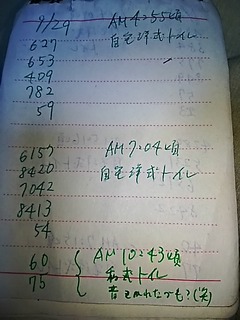 9/29 AM4:55頃
627 自宅洋式トイレ
653
409
782
59
6157 AM7:04頃
8420 自宅洋式トイレ
7042
8413
54
60 AM10:43頃
75 和式トイレ
(笑)